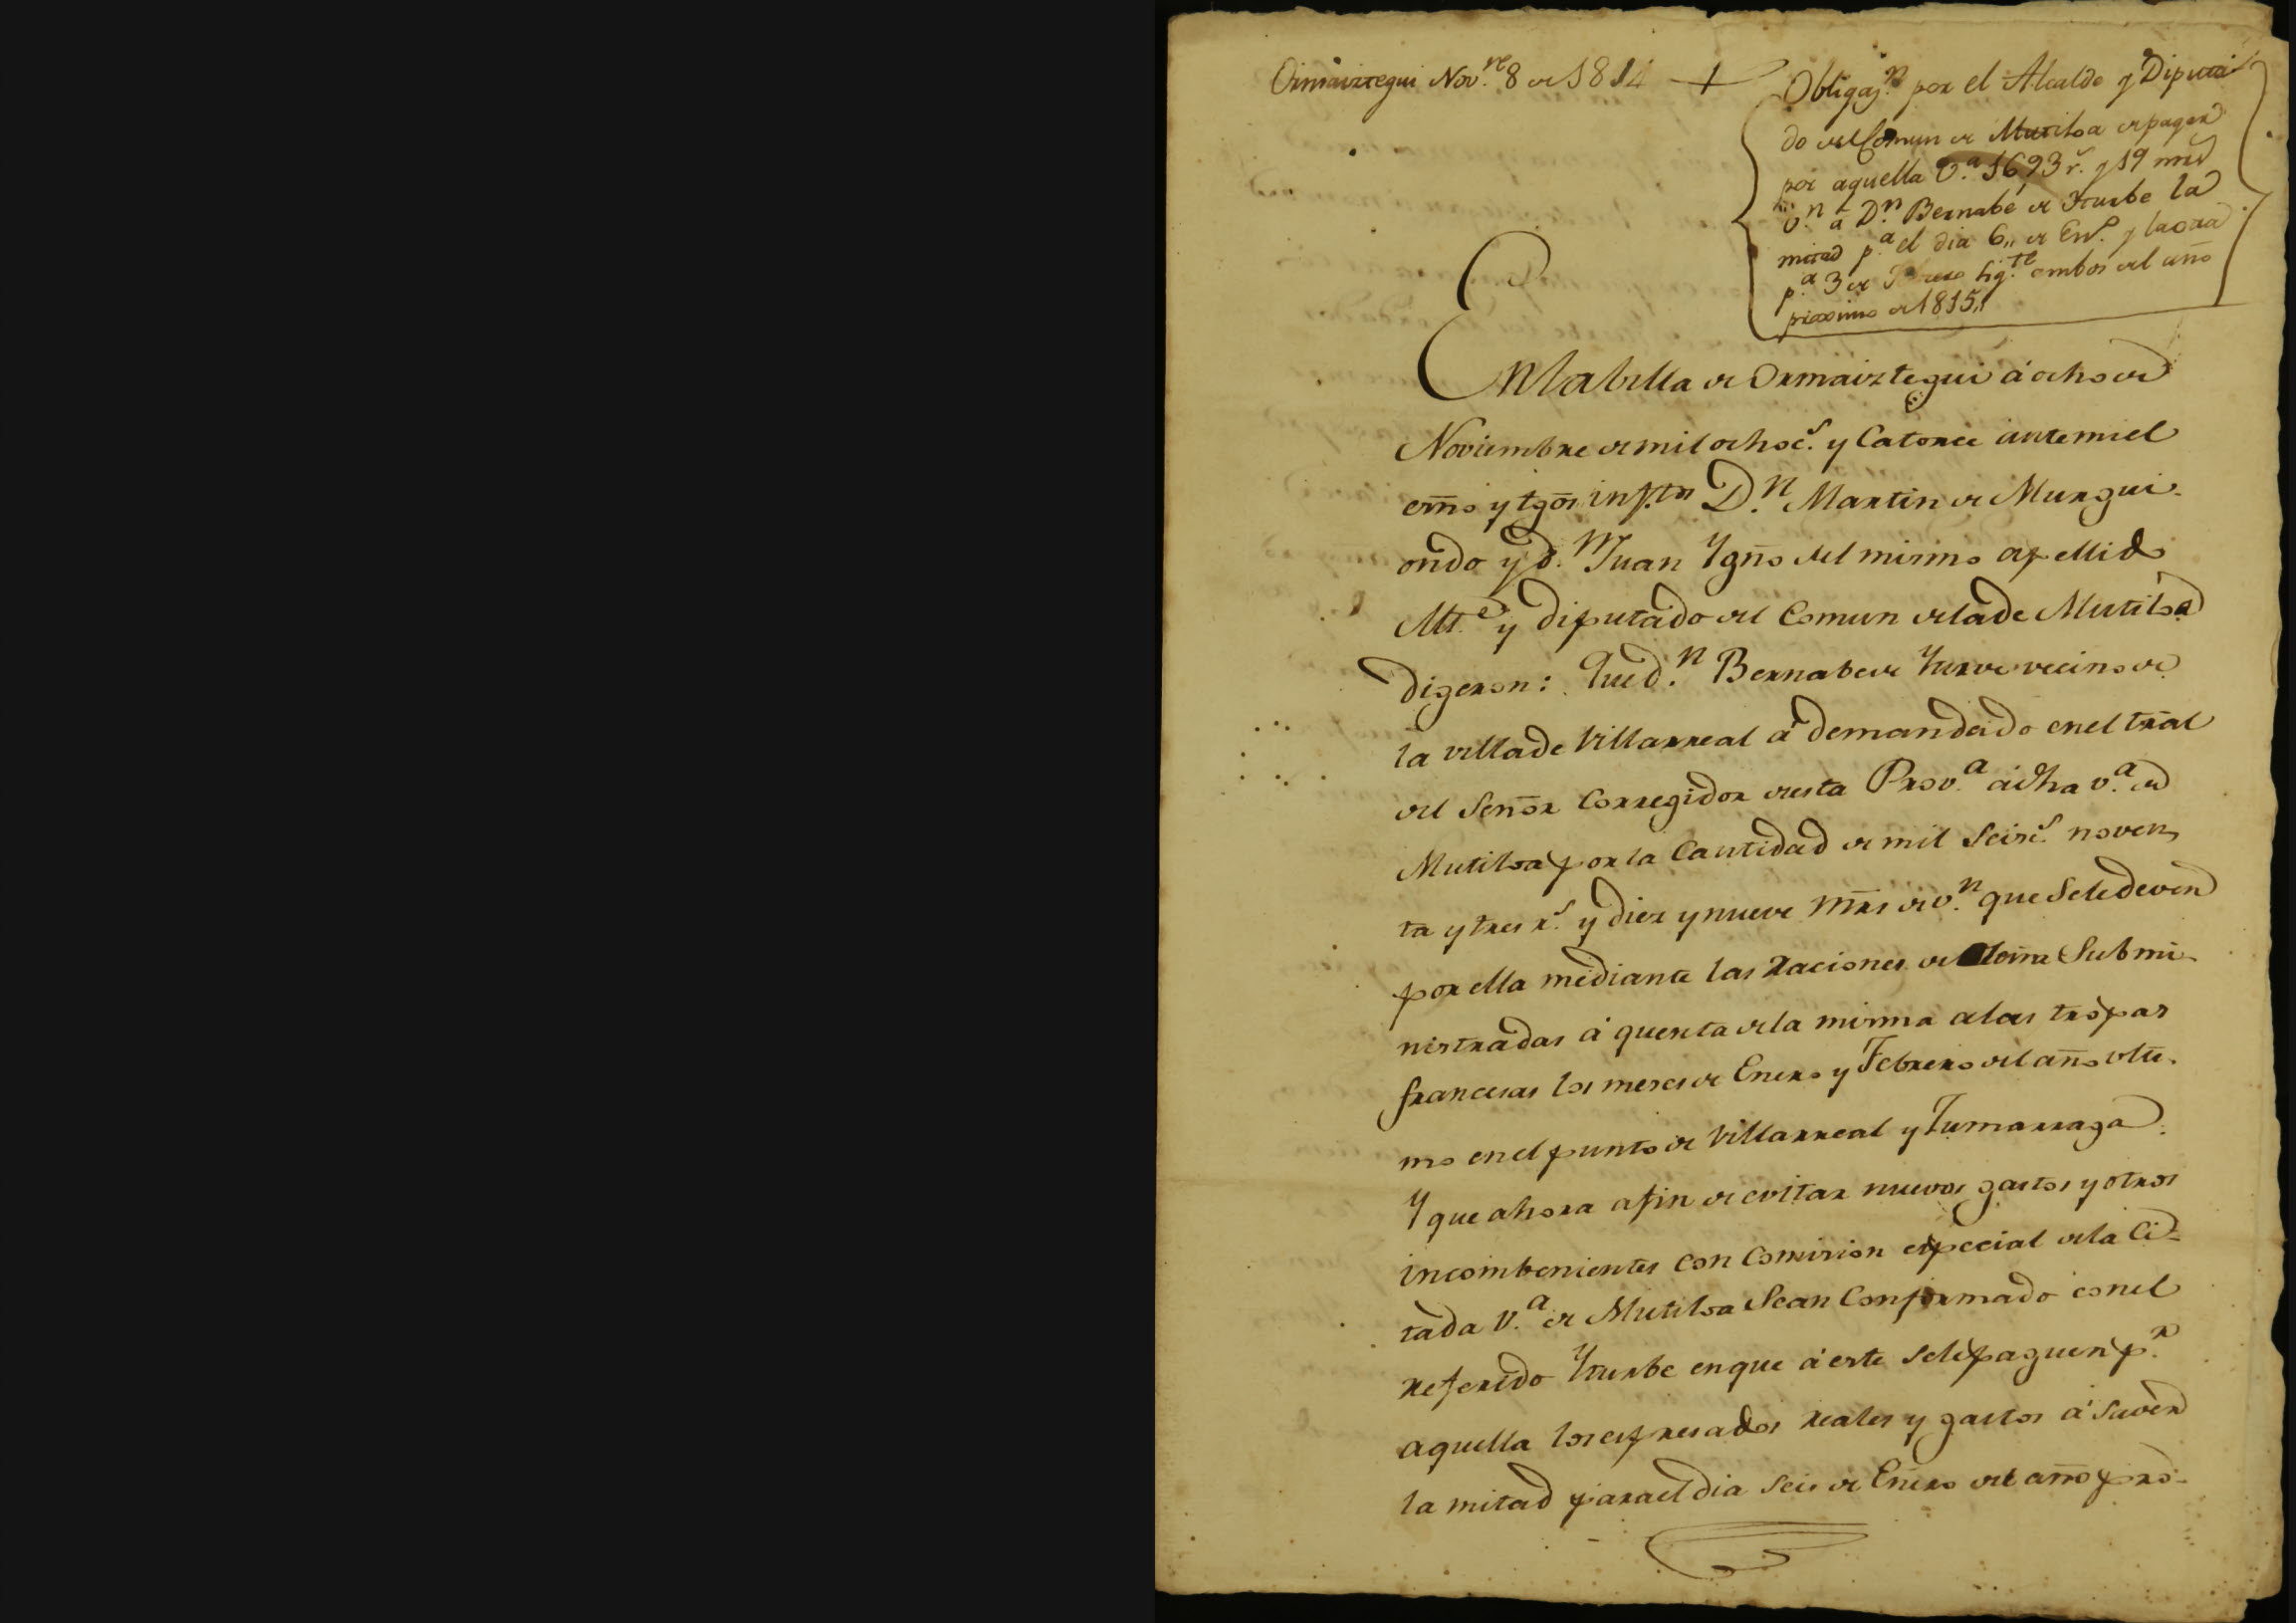 Ormaiztegui Nov.re 8 de 1814
Obligaz.n por el Alcalde y Diputa-
do del Comun de Mutiloa de pagar
por aquella V.a 1693 r.s y 19 mrs
v.n a D.n Bernabe de Iturbe la
mitad p.a el dia 6,, de En.o y la otra
p.a 3 de Febrero sig.te ambos del año
proximo de 1815,,
En la Villa de Ormaiztegui á ocho de
Noviembre de mil ochoc.s y Catorce ante mi el
essno y tgōs infr.tos D.n Martin de Murgui-
ondo y d.n Juan Ygnō del mismo apellido
Alt.e y diputado del Comun de la de Mutiloa
digeron: Que d.n Bernabe de Yturve vecino de
la villa de Villarreal á demandado en el trāl
del Señor Corregidor de esta Prov.a á dha v.a de
Mutiloa por la Cantidad de mil Seisc.s noven
ta y tres r.s y diez y nueve mrs̄ de v.n que Se le deven
por ella mediante las raciones de Submi-
nistradas á quenta de la misma a las tropas
francesas los meses de Enero y Febrero del año ulti-
mo en el punto de Villarreal y Zumarraga.
Y que ahora a fin de evitar nuevos gastos y otros
incombenientes con Comision especial de la Ci-
tada V.a de Mutiloa Sean Conformado con el
referido Yturbe en que á este se le paguen p.r
aquella los espresados reales y gastos á saver
la mitad para el dia seis de Enero del año pro-